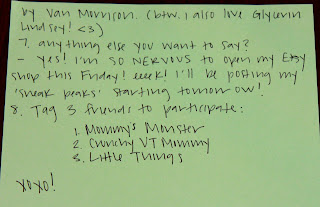 by Van Morrison. (btw, i also love Glycerin
Lindsey! <3)
7. anything else you want to say?
- yes! i'm SO NERVOUS to open my Etsy
shop this Friday! eeek! i'll be posting my
'sneak peaks' starting tomorrow!
8. Tag 3 friends to participate:
1. Mommy's Monster
2. Crunchy VT Mommy
3. Little Things
xoxo!